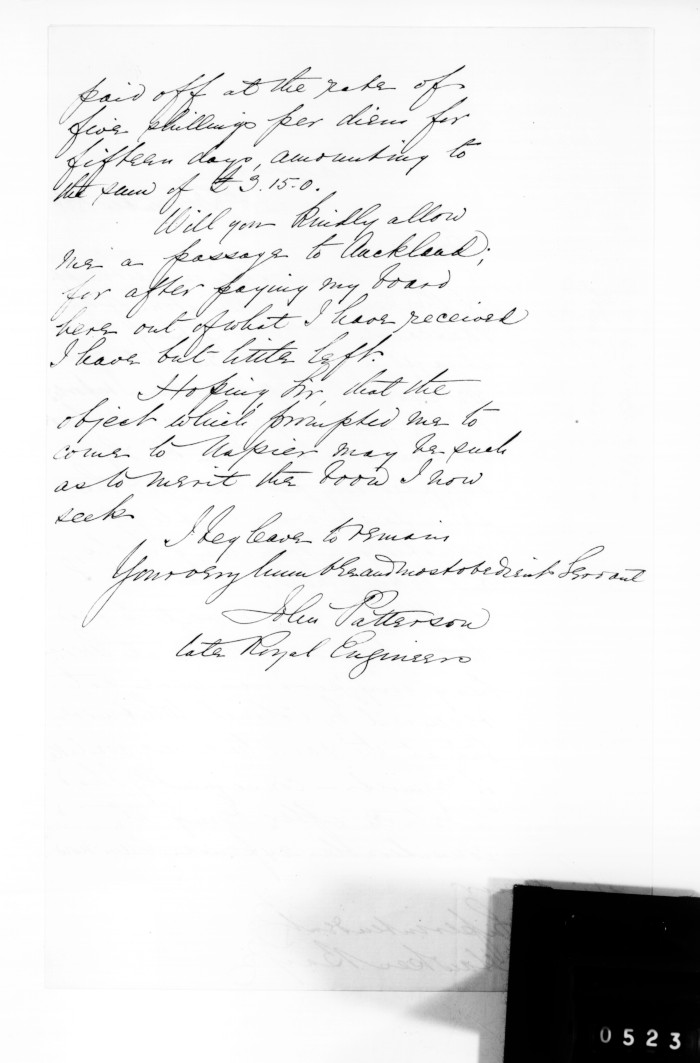 paid off at the rate of
five shillings per diem for
fifteen days, amounting to
the sum of £3.15.0.
Will you kindly allow
me a passage to Auckland;
for after paying my board
here out of what I have received
I have but little left.
Hoping, Sir, that the
object which prompted me to
come to Napier may be such
as to merit the boon I now
seek
I beg leave to remain
Your very humble and most obedient Servant
John Patterson
late Royal Engineers
0523